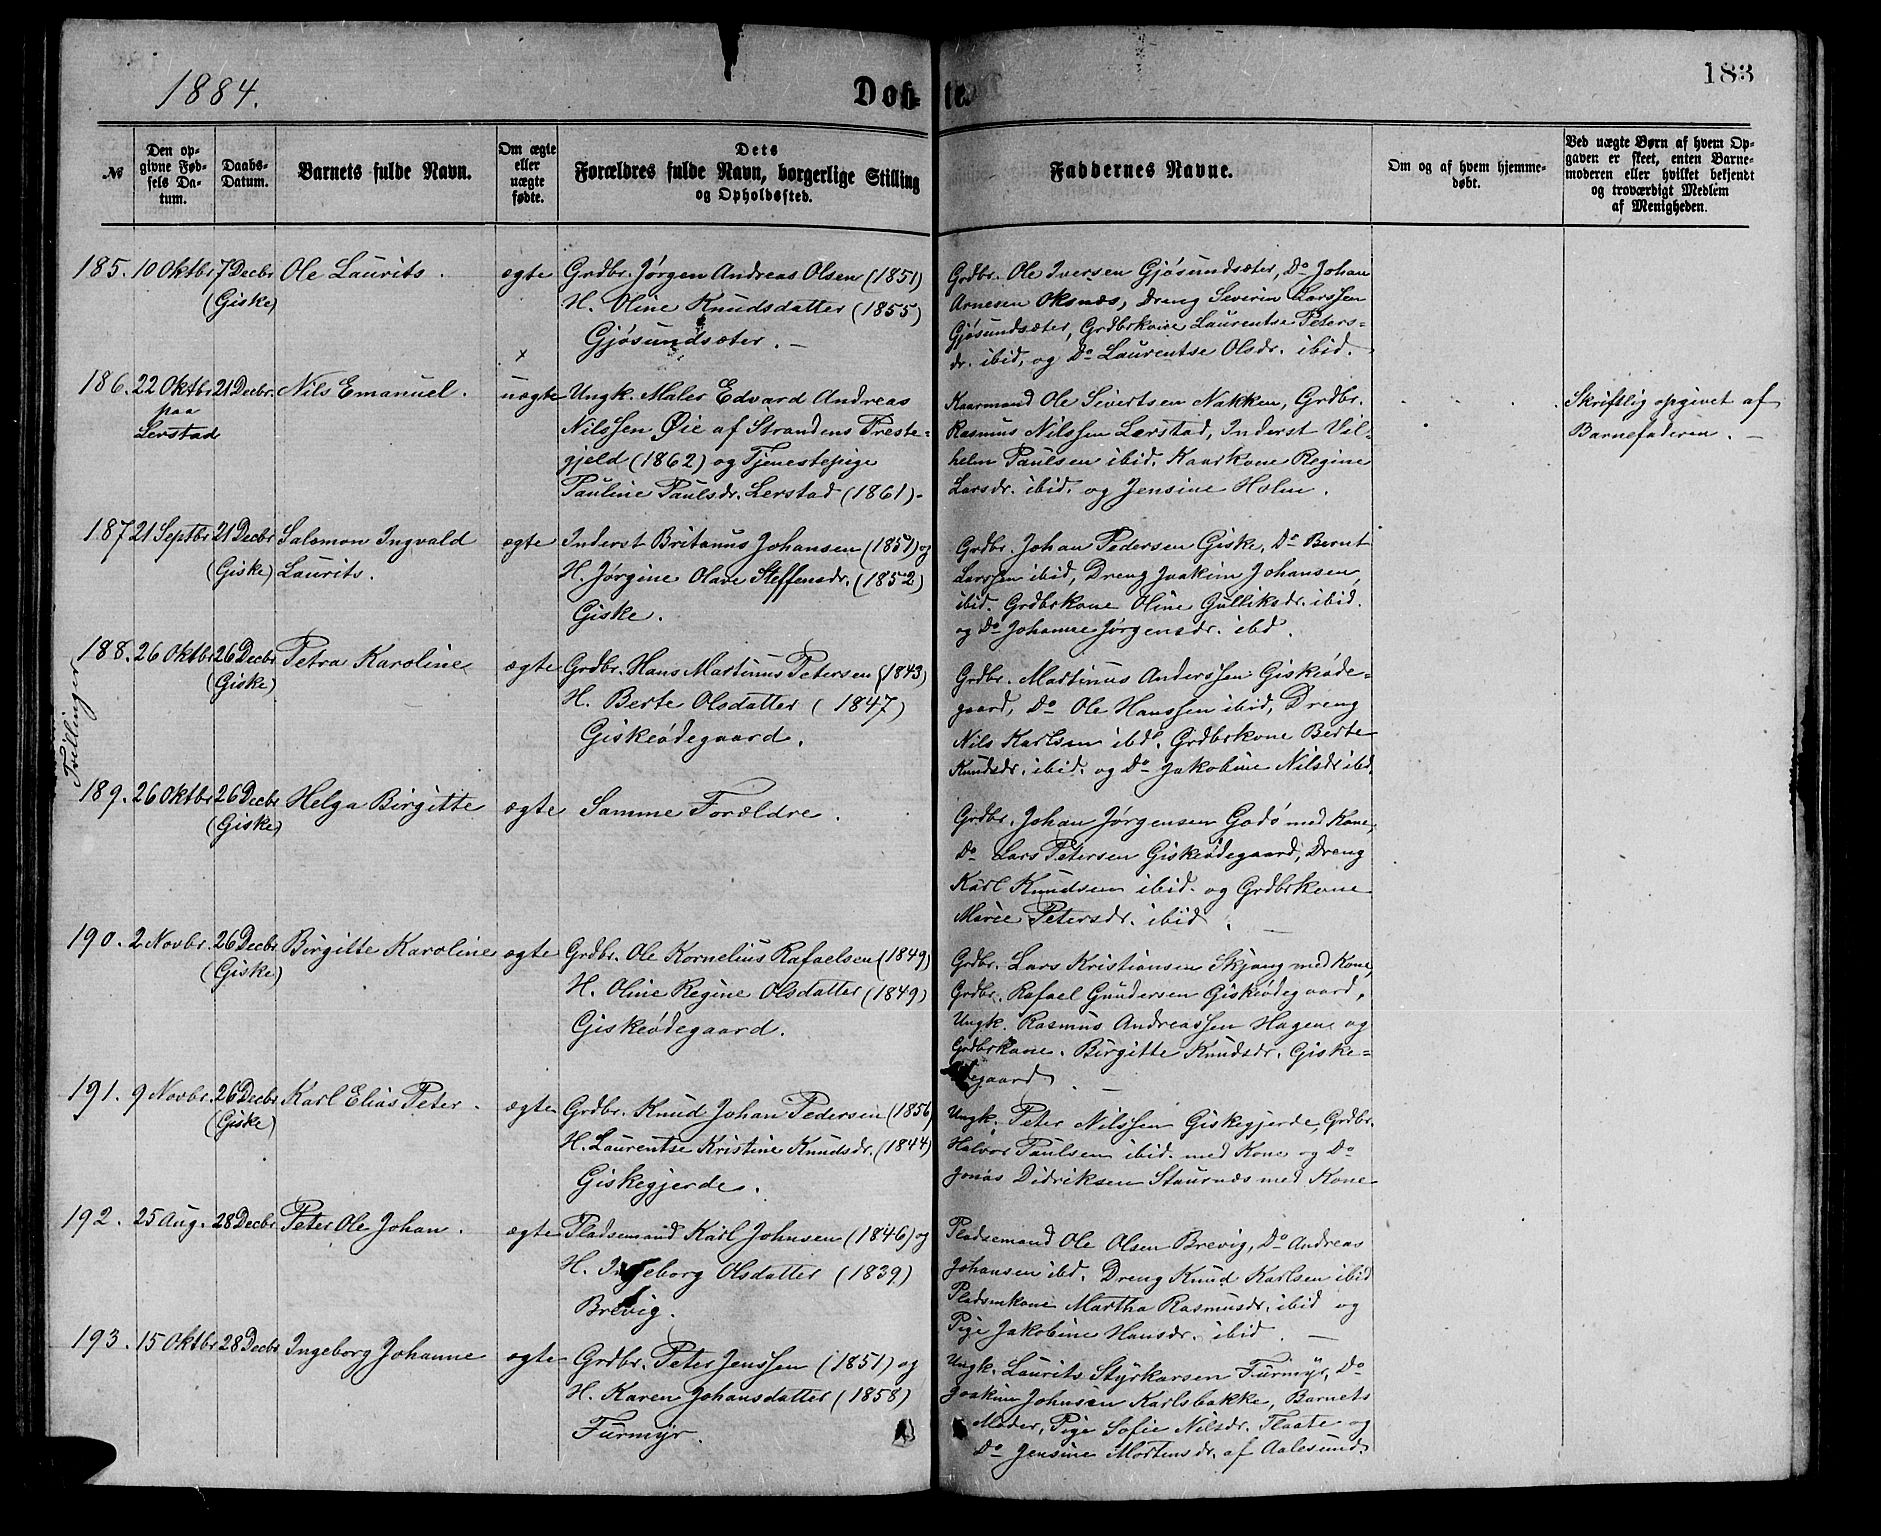 183
1884.
Døb-
te.
№
Den op-
givne Fød-
sels Da-
tum.
Daabs-
Datum.
Barnets fulde Navn.
Om ægte
eller
uægte
fødte.
Dets
Forældres fulde Navn, borgerlige Stilling
og Opholdssted.
Faddernes Navne.
Om og af hvem hjemme-
døbt.
Ved uægte Børn af hvem Op-
gaven er skeet, enten Barne-
moderen eller hvilket bekjendt
og troværdigt Medlem
af Menigheden.
185. 10 Oktbr 7 Decbr Ole Laurits. ægte
(Giske)
Grdbr. Jørgen Andreas Olsen (1851)
H. Oline Knudsdatter (1855)
Gjøsundsæter. –
Grdbr. Ole Iversen Gjøsundsæter, Do Johan
Arnesen Oksnæs, Dreng Severin Larssen
Gjøsundsæter, Grdbrkone Laurentse Peters-
dr. ibid, og Do Laurentse Olsdr. ibid.
x
186. 22 Oktbr 21 Decbr. Nils Emanuel. uægte
paa
Lerstad
Ungk. Maler Edvard Andreas
Nilssen Øie af Strandens Preste-
gjeld (1862) og Tjenestepige
Pauline Paulsdr. Lerstad (1861) -
Kaarmand Ole Sivertsen Nakken, Grdbr.
Rasmus Nilssen Lerstad, Inderst Vil-
helm Paulsen ibid. Kaarkone Regine
Larsdr. ibid. og Jensine Holm.
Skriftlig opgivet af
Barnefaderen. –
187 21 Septbr 21 Decbr Salomon Ingvald ægte
(Giske) Laurits.
Inderst Britanus Johansen (1851) og
H. Jørgine Olave Steffensdr. (1852)
Giske.
Grdbr. Johan Pedersen Giske, Do Bernt
Larssen ibid, Dreng Joakim Johansen,
ibid. Grdbrkone Oline Gulliksdr. ibid.
og Do Johanne Jørgensdr. ibd.
Tvillinger
188. 26 Oktbr 26 Decbr Petra Karoline ægte
(Giske)
Grdbr. Hans Martinus Petersen (1843)
H. Berte Olsdatter (1847)
Giskeødegaard.
Grdbr. Martinus Anderssen Giskeøde-
gaard, Do Ole Hanssen ibid, Dreng
Nils Karlsen ibd. Grdbrkone Berte
Knudsdr. ibid. og Do Jakobine Nilsdr ibd
189. 26 Oktbr 26 Decbr Helga Birgitte ægte Samme Forældre.
(Giske)
Grdbr. Johan Jørgensen Godø med Kone,
Do Lars Petersen Giskeødegaard, Dreng
Karl Knudsen ibid. og Grdbrkone
Marie Petersdr. ibid.
190. 2 Novbr. 26 Decbr Birgitte Karoline ægte
(Giske)
Grdbr. Ole Kornelius Rafaelsen (1849)
H. Oline Regine Olsdatter (1849)
Giskeødegaard.
Grdbr. Lars Kristiansen Skjong med Kone,
Grdbr. Rafael Gundersen Giskeødegaard,
Ungk. Rasmus Andreassen Hagen og
Grdbrkone. Birgitte Knudsdr. Giske-
degaard. –
191. 9 Novbr. 26 Decbr Karl Elias Peter. ægte
(Giske)
Grdbr. Knud Johan Pedersen (1856
H. Laurentse Kristine Knudsdr. (1844)
Giskegjerde.
Ungk. Peter Nilssen Giskegjerde, Grdbr.
Halvor Paulsen ibid. med Kone og Do
Jonas Didriksen Staurnæs med Kone
192. 25 Aug. 28 Decbr Peter Ole Johan. ægte
Pladsemand Karl Johnsen (1846) og
H. Ingeborg Olsdatter (1839)
Brevig.
Pladsemand Ole Olsen Brevig, Do Andreas
Johansen ibd. Dreng Knud Karlsen ibid
Pladsmkone Martha Rasmusdr. ibid og
Pige Jakobine Hansdr. ibid. –
193. 15 Oktbr 28 Decbr Ingeborg Johanne ægte
Grdbr. Peter Jenssen (1851) og
H. Karen Johansdatter (1858)
Furmyr.
Ungk. Laurits Styrkarsen Furmyr, Do
Joakim Johnsen Karlsbakke, Barnets
Moder, Pige Sofie Nilsdr. Flaate og
Do Jensine Mortensdr. af Aalesund.